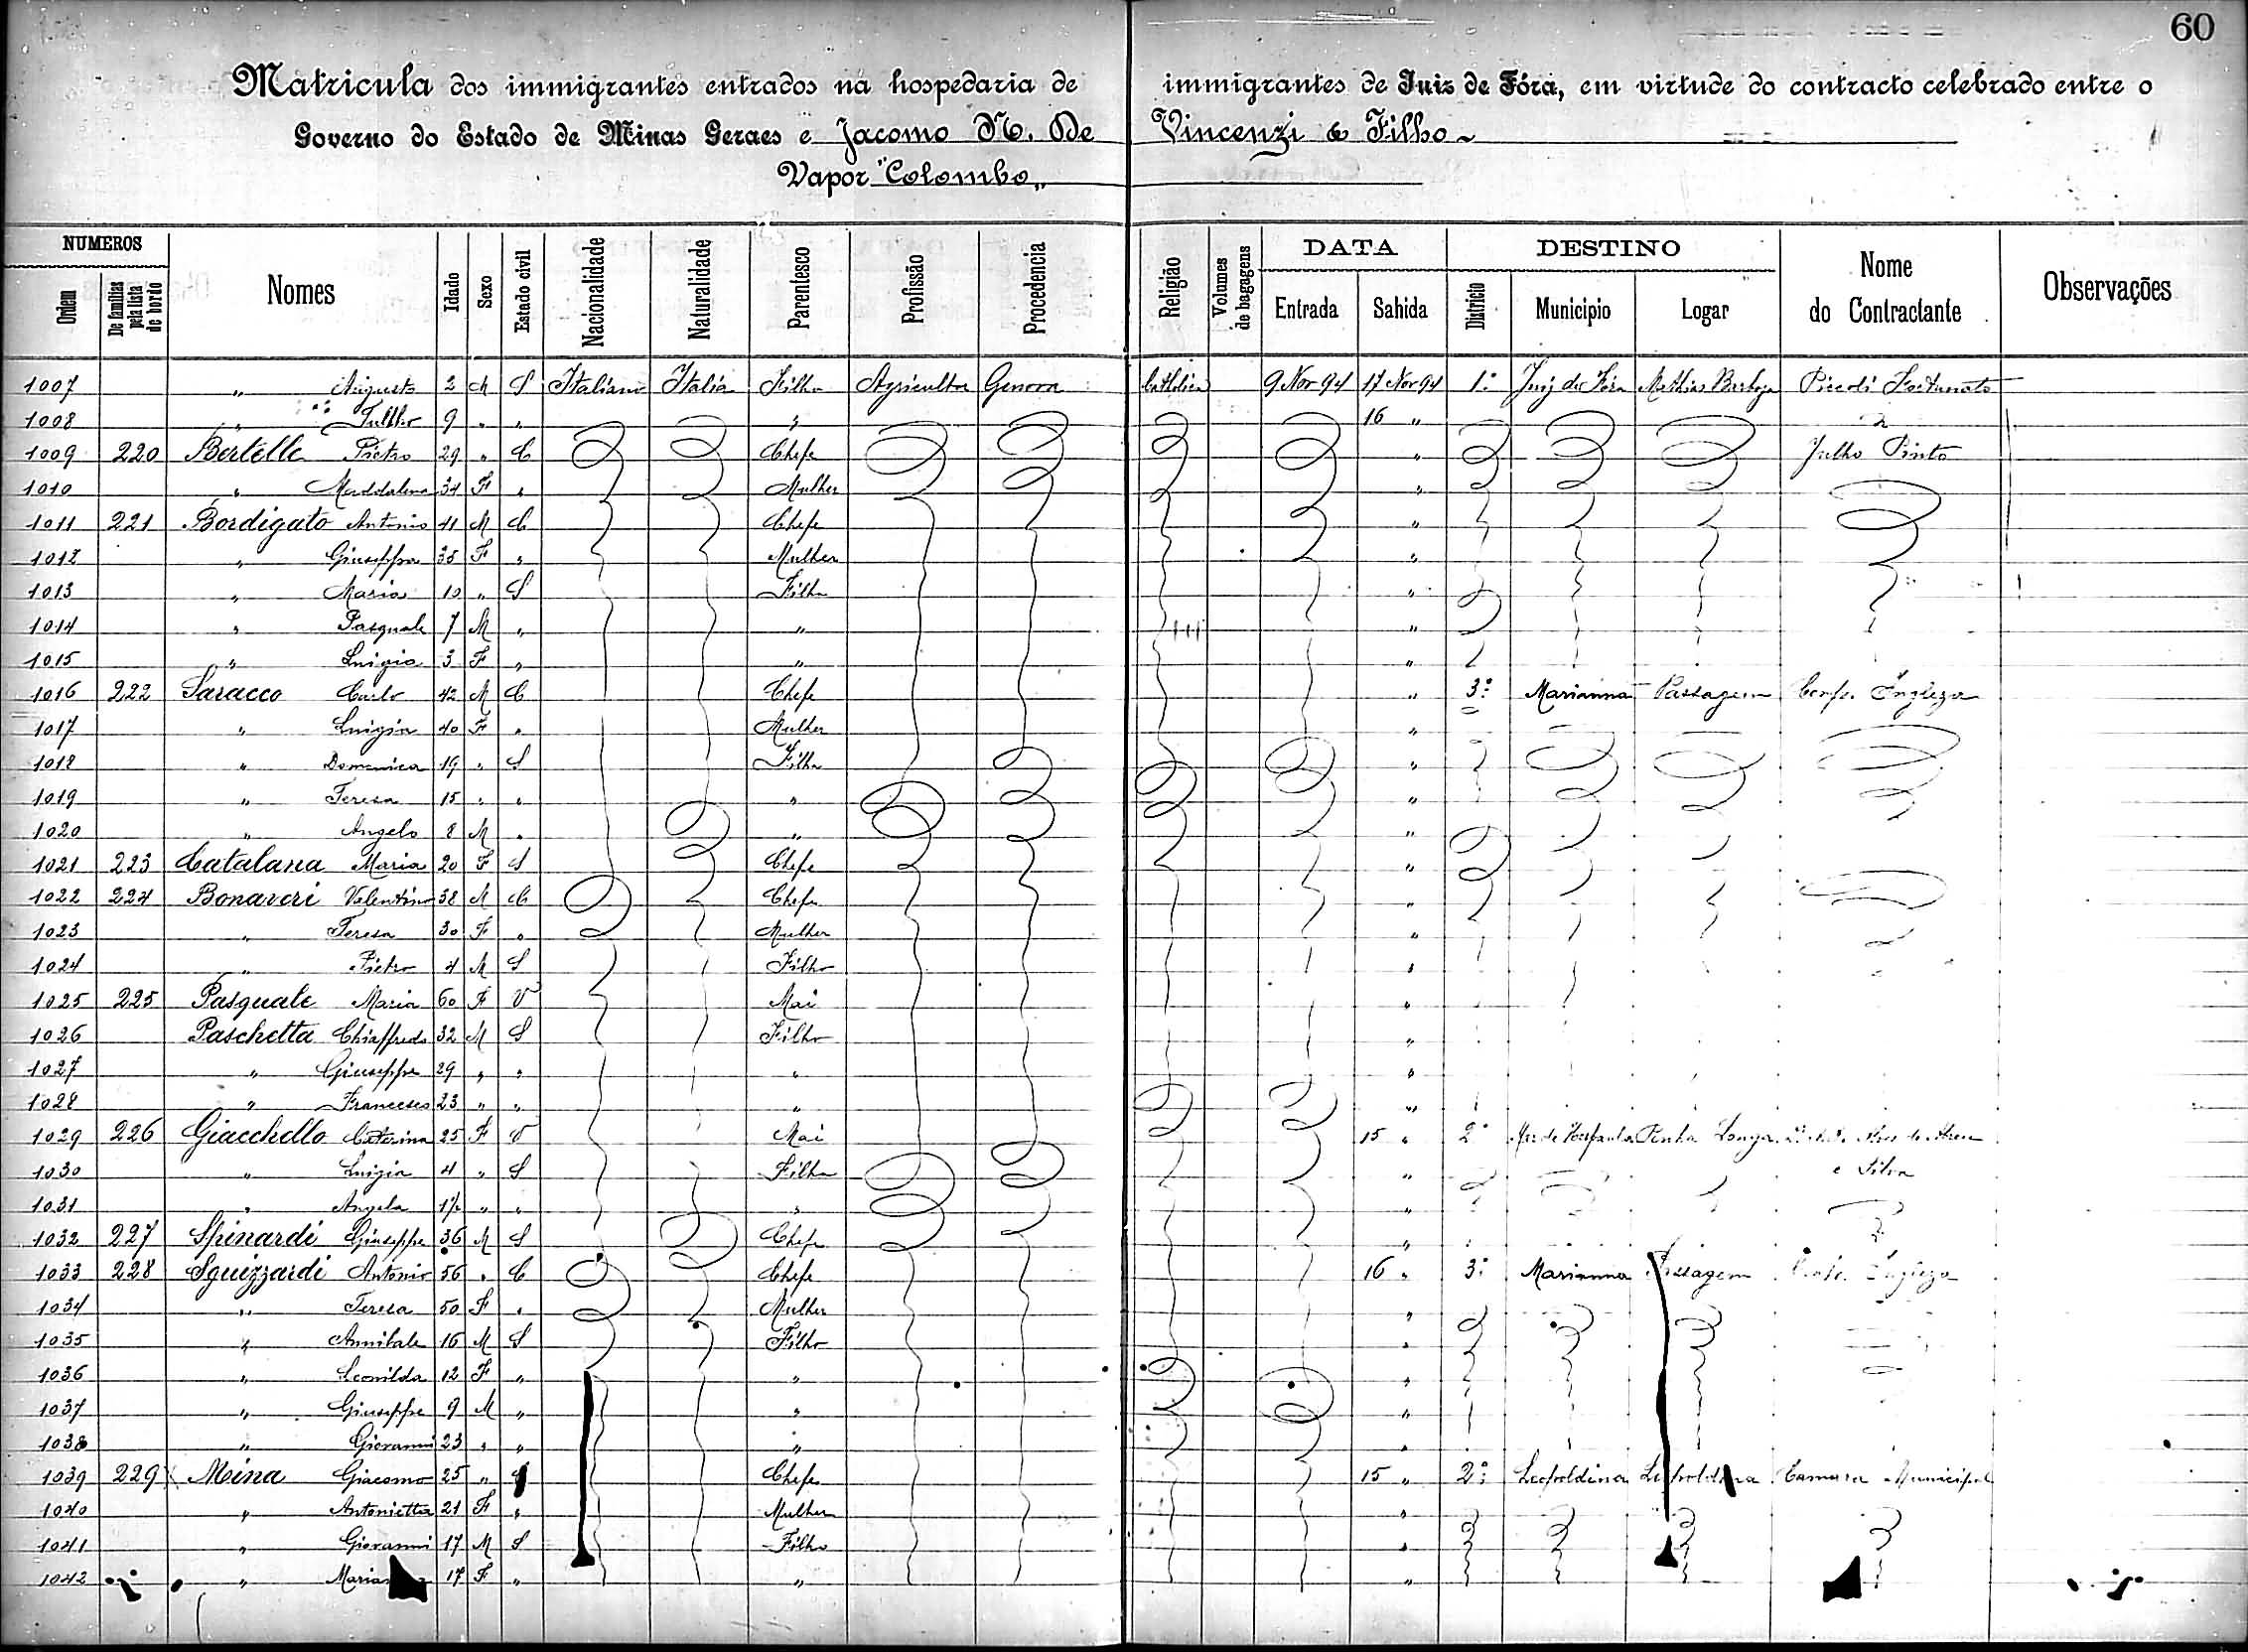 60
Matricula dos immigrantes entrados na hospedaria de immigrantes de Juiz de Fóra, em virtude do contracto celebrado entre o
Governo do Estado de Minas Geraes e Jacomo N. De Vincenzi & Filho
Vapor "Colombo"
NUMEROS Nomes Idade Sexo Estado civil Nacionalidade Naturalidade Parentesco Profissão Procedencia Religião Volumes de bagagens DATA DESTINO Nome do Contractante Observações
Ordem De familias pela lista de bordo Entrada Sahida Districto Municipio Logar
1007 " Augusto 2 M S Italiano Italia Filho Agricultor Genova Catholica 9 Nov 94 17 Nov 94 1º Juiz de Fóra Mathias Barboza Piccoli Fortunato
1008 " 9 " " " 16 "
1009 220 Bertelle Pietro 29 " C Chefe " Julho Pinto
1010 " Maddalena 34 F " Mulher "
1011 221 Bordigato Antonio 41 M C Chefe "
1012 " Giuseppa 35 F " Mulher "
1013 " Maria 10 " S Filha "
1014 " Pasquale 7 M " " "
1015 " Luigia 3 F " " "
1016 222 Saracco Carlo 42 M C Chefe " 3º Marianna Passagem Ingleza
1017 " Luigia 40 F " Mulher "
1018 " Domenica 19 " S Filha "
1019 " Teresa 15 " " " "
1020 " Angelo 8 M " " "
1021 223 Catalana Maria 20 F S Chefe "
1022 224 Bonaveri Valentino 38 M C Chefe "
1023 " Teresa 30 F " Mulher "
1024 " Pietro 4 M S Filho "
1025 225 Pasquale Maria 60 F V Mai "
1026 Paschetta Chiaffredo 32 M S Filho "
1027 " Giuseppe 29 " " " "
1028 " Francesco 23 " " " "
1029 226 Giacchello Caterina 25 F V Mai 15 " 2º
1030 " Luigia 4 " S Filha " e Silva
1031 " Angela " " " "
1032 227 Spinardi Giuseppe 36 M S Chefe "
1033 228 Sguizzardi Antonio 56 " C Chefe 16 " 3º Marianna Passagem Ingleza
1034 " Teresa 50 F " Mulher "
1035 " Annibale 16 M S Filho "
1036 " Leonilda 12 F " " "
1037 " Giuseppe 9 M " " "
1038 " Giovanni 23 " " " "
1039 229 Mina Giacomo 25 " Chefe 15 " 2º Leopoldina Leopoldina Camara Municipal
1040 " Antonietta 21 F " Mulher "
1041 " Giovanni 17 M S Filho "
1042 " 17 F " " "